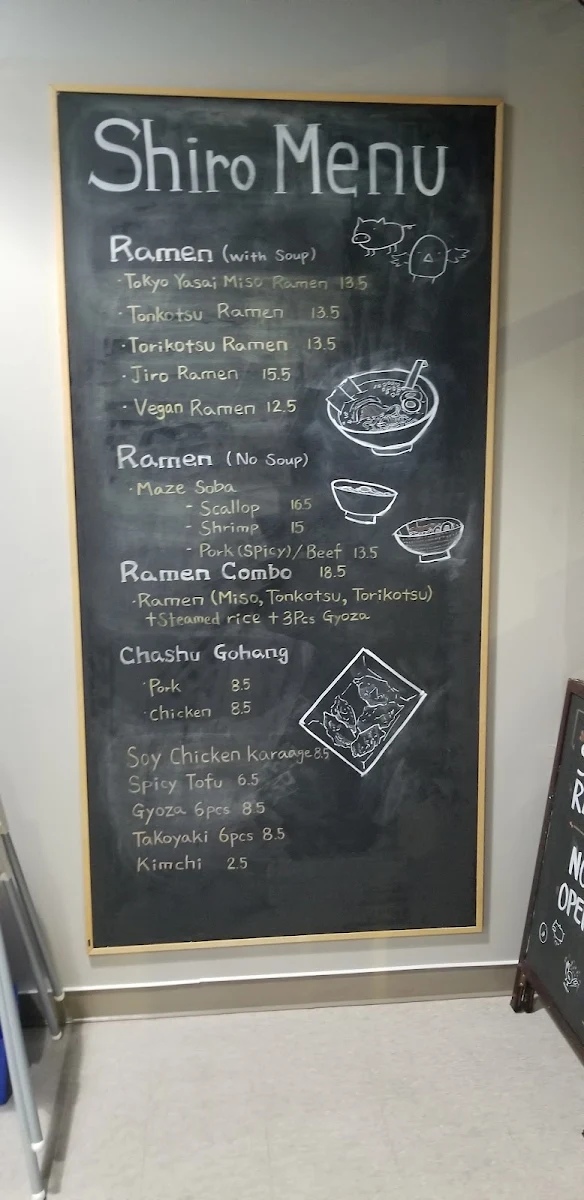 Shiro Menu
Ramen (with Soup)
·Tokyo Yasai Miso Ramen 13.5
·Tonkotsu Ramen 13.5
·Torikotsu Ramen 13.5
·Jiro Ramen 15.5
·Vegan Ramen 12.5
Ramen (No Soup)
·Maze Soba
- Scallop 16.5
- Shrimp 15
- Pork (SPicy)/Beef 13.5
Ramen Combo 18.5
·Ramen (Miso, Tonkotsu, Torikotsu)
+Steamed rice +3Pcs Gyoza
Chashu Gohang
·Pork 8.5
·Chicken 8.5
Soy Chicken Karaage 8.5
Spicy Tofu 6.5
Gyoza 6pcs 8.5
Takoyaki 6pcs 8.5
Kimchi 2.5